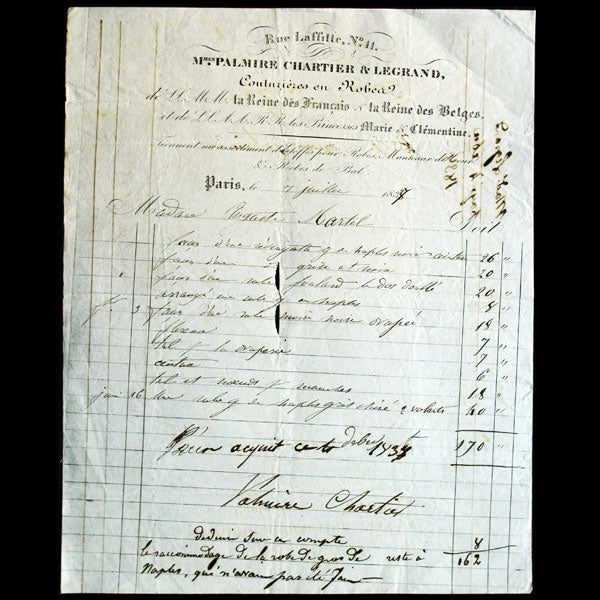 Rue Laffitte, No. 11.
Mmes PALMIRE CHARTIER & LEGRAND,
Couturières en Robes
de LL. M. M. la Reine des Français & la Reine des Belges,
et de LL. A. A. R. R. les Princesses Marie & Clémentine.
tiennent un assortiment d'étoffes pour Robes, Manteaux de Cour
& Robes de Bal.
Paris, le juillet 1837
Madame Auguste Martel Doit
façon d'une g de naples noir 26 "
façon d'une grise et noir 20 "
façon d'une robe foulard le dos doublé 20 "
arrangé une robe g en naples 8 "
3 façon d'une robe moire noire drapée 18 "
7 "
tul p la draperie 7 "
ceinture 6 "
tul et nœuds p manches 18 "
juin 16 Une robe g de naples gris 2 volants 40 "
Pour acquit ce 10 1837 170 "
Palmire Chartier
déduire sur ce compte 8
le raccommodage de la robe de gros de reste à 162
Naples, qui n'avait pas été fait